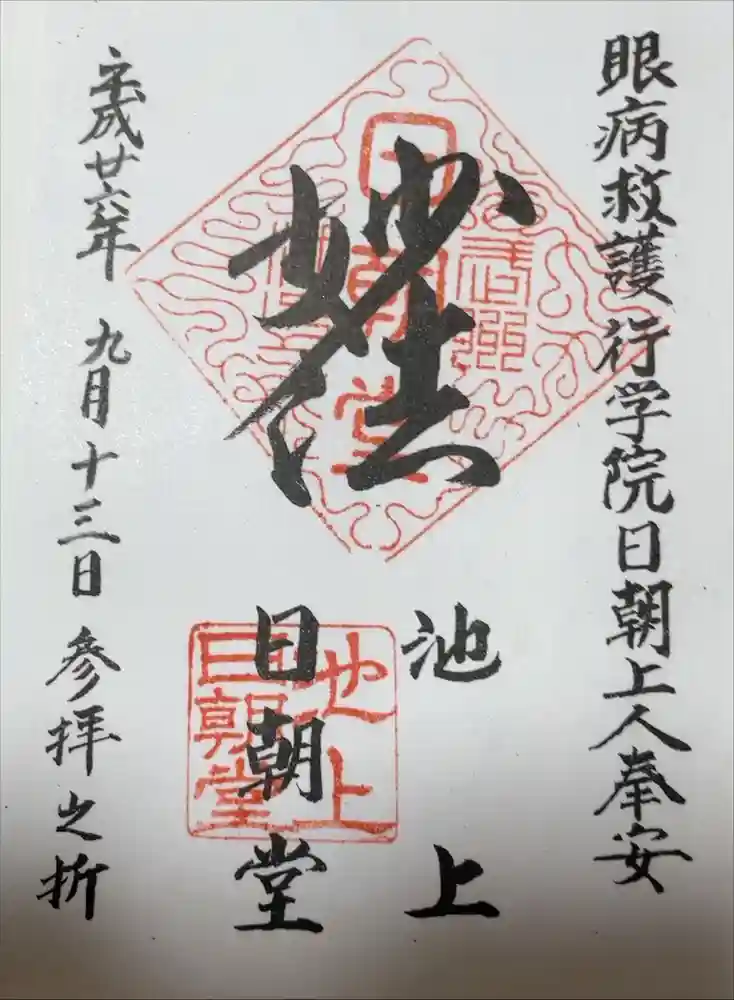 眼病救護行学院日朝上人奉安
妙法
日朝堂
池上
日朝堂
池上
日朝堂
平成廿六年 九月十三日 参拝之折